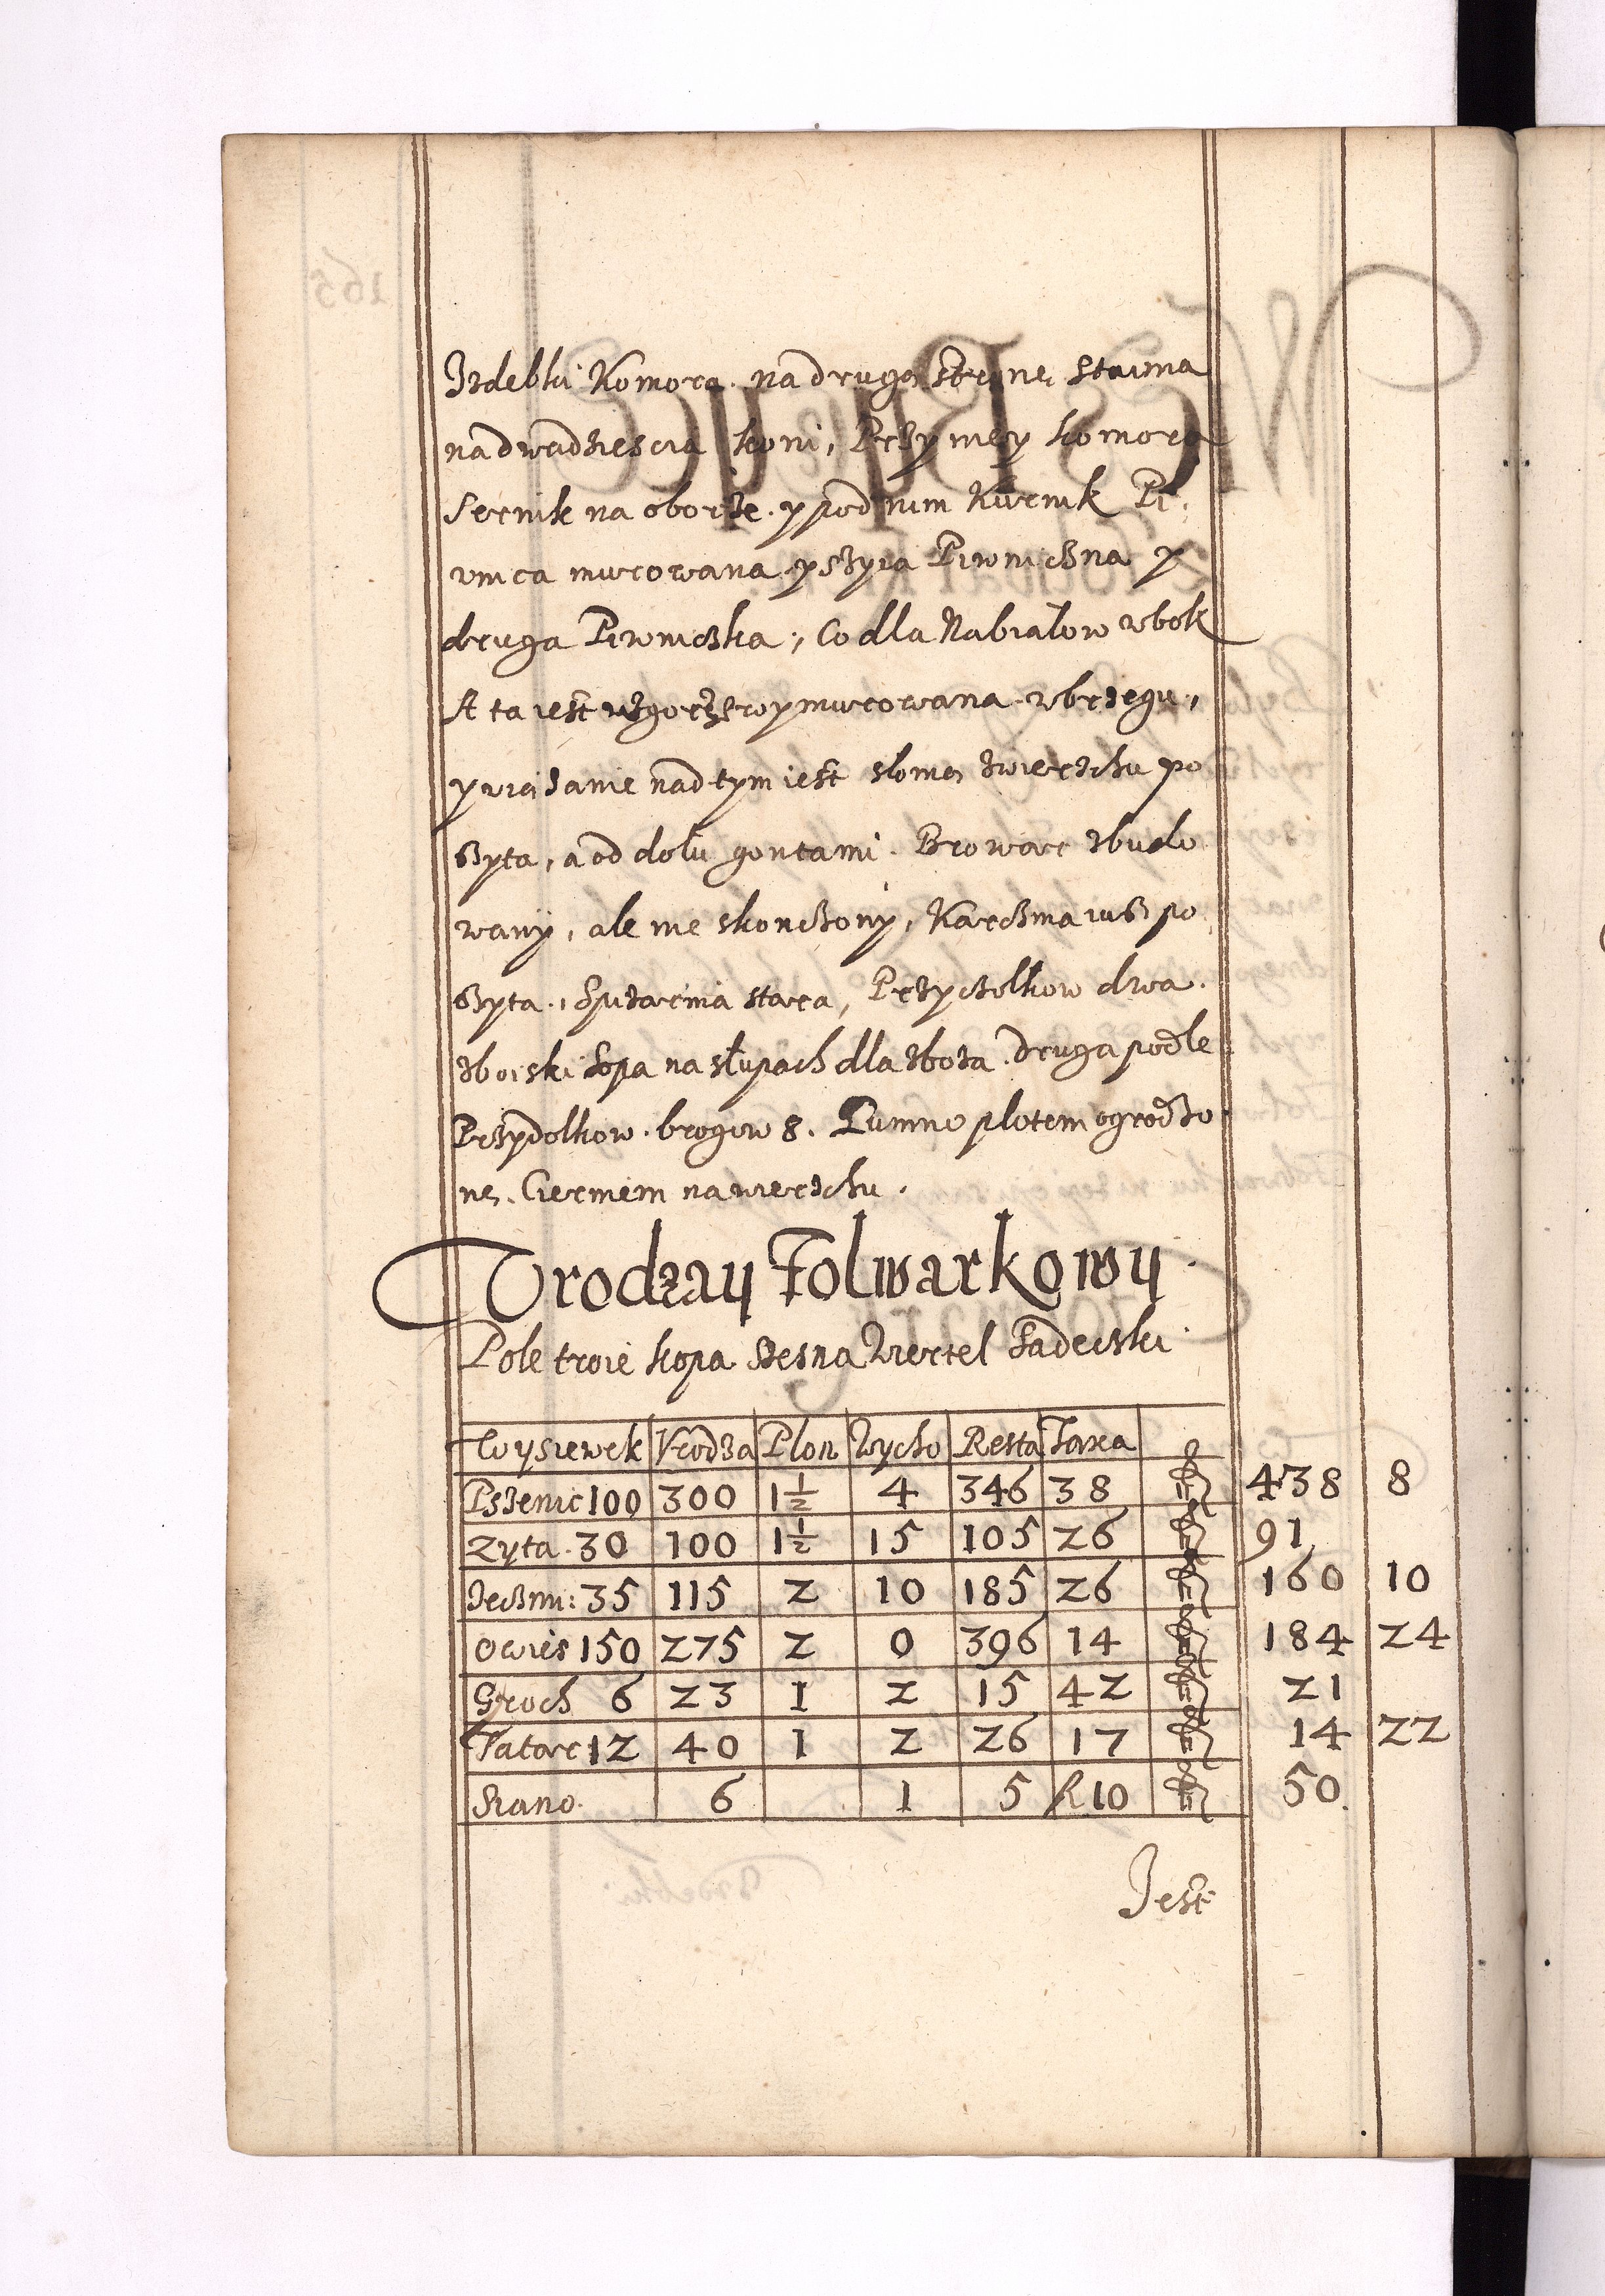 Izdebki Komora. na drugą stronę staina
na dwadziescia koni, Przy niey komora
Sernik na oborze. y pod nim Kurnik Pi
vnica murowana y szyia Piwniczna y
druga Piwniczka, Co dla Nabiałow wbok
A ta iest murowana w brzegu,
y wiązanie nad tym iest słomą zwierzchu po
szyta, a od dołu gontami. Browarc zbudo
wany, ale nie skonczony, Karczma iusz po
szyta., Spizarnia stara, Przyczołkow dwa.
zboiski Sopa na słupach dla zboza. druga podle
Przydolkow. brogow 8. Gumno płotem ogrodzo
ne, Cierniem nawierzchu.
Vrodzay Folwarkowy
Pole troie kopa Wiertel Sadecki
Wysiewek Vrodza Plon Wycho Resta Taxa
Pszenic 100 300 1½ 4 346 38 438 8
Zyta. 30 100 1½ 15 105 26 91
Jeczmi: 35 115 2 10 185 26 160 10
Owies 150 275 2 0 396 14 184 24
Groch 6 23 1 2 15 42 21
Tatarc 12 40 1 2 26 17 14 22
Siano. 6 1 5 10 50.
Jest